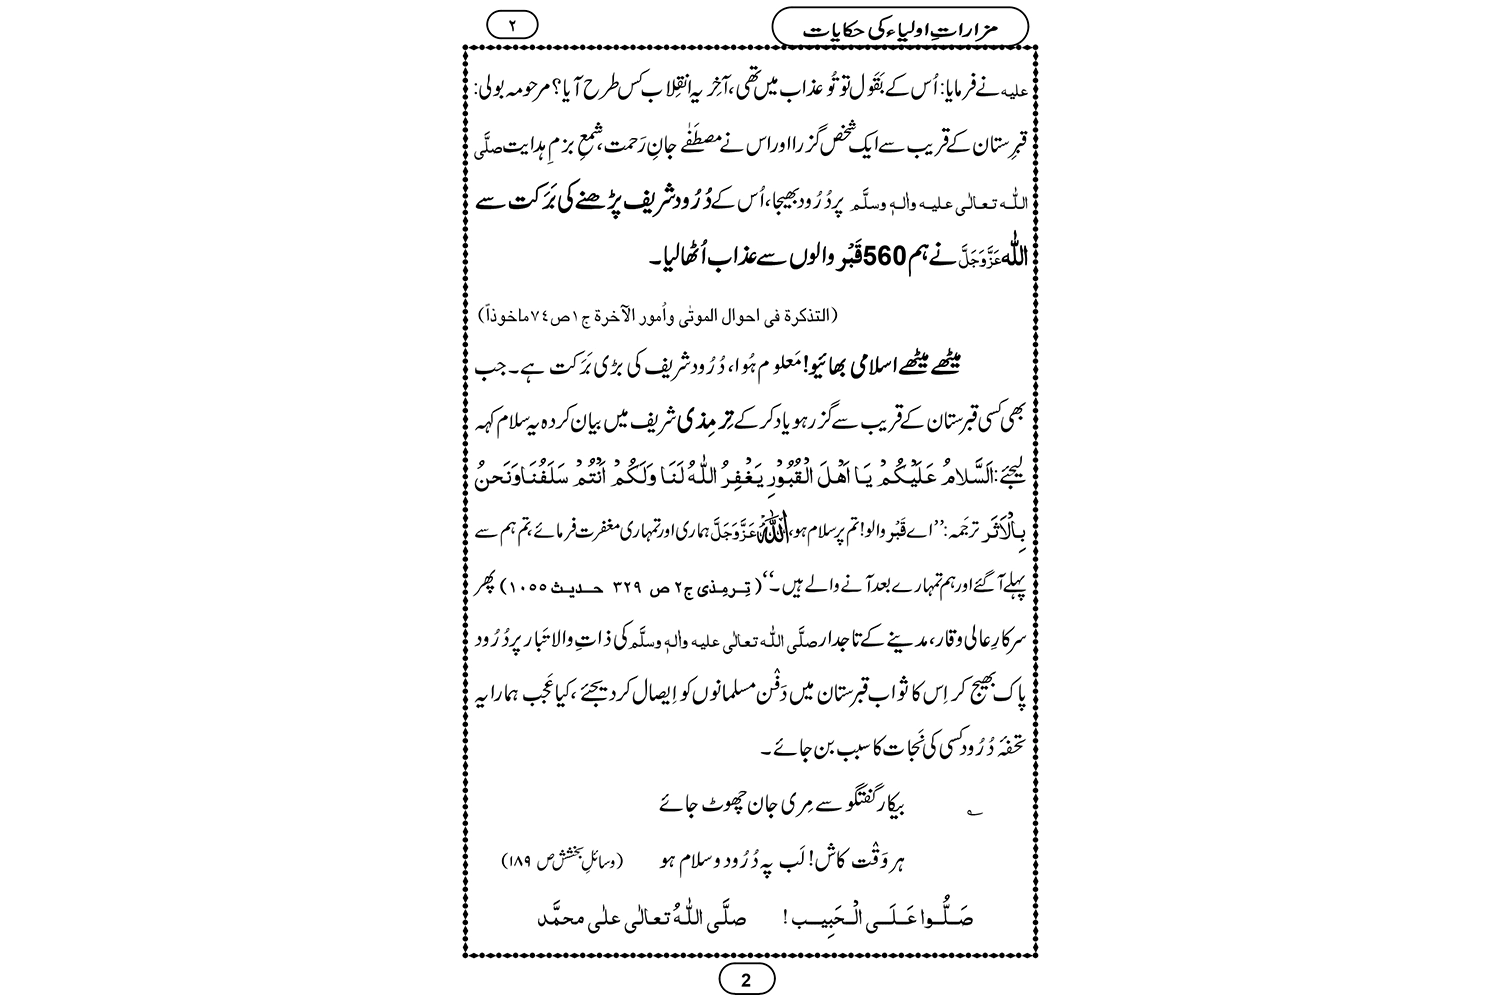 مزاراتِ اولیاء کی حکایات
۲
علیه نے فرمایا: اُس کے بَقَول تو تُو عذاب میں تھی، آخِر یہ اِنقِلاب کس طرح آیا؟ مرحومہ بولی:
قبرِستان کے قریب سے ایک شخص گزرا اور اس نے مصطَفٰے جانِ رَحمت، شمعِ بزمِ ہدایت صلَّی
اللّٰہ تعالٰی علیہ واٰلہٖ وسلَّم پر دُرُود بھیجا، اُس کے دُرُود شریف پڑھنے کی بَرَکت سے
اللّٰہ عَزَّوَجَلَّ نے ہم 560 قَبْر والوں سے عذاب اُٹھا لیا۔
(التذکرۃ فی احوال الموتٰی واُمور الآخرۃ ج۱ص۷٤ماخوذاً)
میٹھے میٹھے اسلامی بھائیو! مَعلوم ہُوا، دُرُود شریف کی بڑی بَرَکت ہے۔ جب
بھی کسی قبرستان کے قریب سے گزر ہو یاد کر کے تِرمِذی شریف میں بیان کردہ یہ سلام کہہ
لیجئے: اَلسَّلَامُ عَلَیْکُمْ یَا اَھْلَ الْقُبُوْرِ یَغْفِرُ اللّٰہُ لَنَا وَلَکُمْ اَنْتُمْ سَلَفُنَا وَنَحنُ
بِالْاَثَر ترجَمہ: ’’اے قَبْر والو! تم پر سلام ہو، اللّٰہُ عَزَّوَجَلَّ ہماری اور تمہاری مغفرت فرمائے، تم ہم سے
پہلے آگئے اور ہم تمہارے بعد آنے والے ہیں۔‘‘ (تِرمِذی ج۲ ص ۳۲۹ حدیث ۱۰۵۵) پھر
سرکارِ عالی وقار، مدینے کے تاجدار صلَّی اللّٰہ تعالٰی علیہ واٰلہٖ وسلَّم کی ذاتِ والا تَبار پر دُرُود
پاک بھیج کر اِس کا ثواب قبرستان میں دَفْن مسلمانوں کو اِیصال کر دیجئے، کیا عَجَب ہمارا یہ
تحفۂ دُرُود کسی کی نَجات کا سبب بن جائے۔
بیکار گفتگو سے مِری جان چھوٹ جائے
ہر وَقْت کاش! لَب پہ دُرُود و سلام ہو (وسائلِ بخشش ص ۱۸۹)
صَلُّوا عَلَی الْحَبِیب! صلَّی اللّٰہُ تعالٰی علٰی محمَّد
2